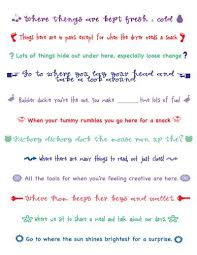 Where things are kept fresh & cold
Things here are 4 paws except for when the driver needs a snack
Lots of things hide out under here, especially loose change
Go to where you lay your head and
take a look around
Rubber duckie you're the one. You make ____ time lots of fun!
When your tummy rumbles you go here for a snack
Hickory dickory dock the mouse run up the?
Where there are many things to read, out just clues!
All the tools for when you're feeling creative are here.
Where Mom keeps her keys and wallet
Where we sit to share a meal and talk about our days.
Go to where the sun shines brightest for a surprise.